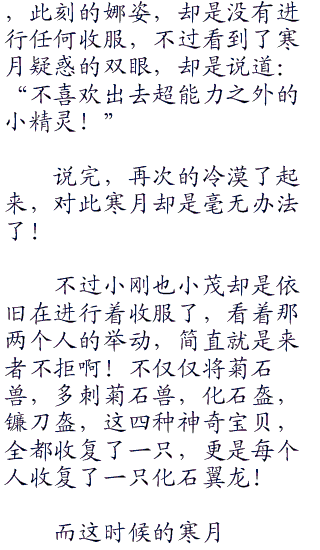 ，此刻的娜姿，却是没有进
行任何收服，不过看到了寒
月疑惑的双眼，却是说道：
“不喜欢出去超能力之外的
小精灵！”
说完，再次的冷漠了起
来，对此寒月却是毫无办法
了！
不过小刚也小茂却是依
旧在进行着收服了，看着那
两个人的举动，简直就是来
者不拒啊！不仅仅将菊石
兽，多刺菊石兽，化石盔，
镰刀盔，这四种神奇宝贝，
全都收复了一只，更是每个
人收复了一只化石翼龙！
而这时候的寒月